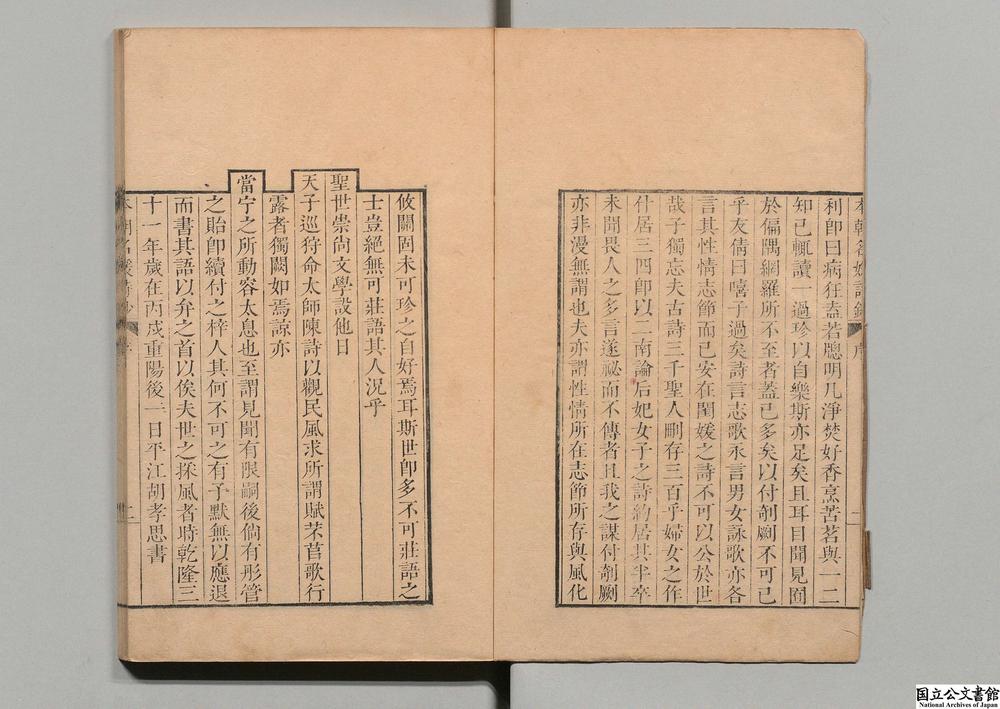 本朝名媛詩鈔 序 二
利卽曰病狂盍若聰明几淨焚好香烹苦茗與一二
知己輒讀一過珍以自樂斯亦足矣且耳目聞見囿
於偏隅網羅所不至者蓋已多矣以付剞劂不可已
乎友倩曰嘻子過矣詩言志歌永言男女詠歌亦各
言其性情志節而已安在閨媛之詩不可以公於世
哉子獨忘夫古詩三千聖人刪存三百乎婦女之作
什居三四卽以二南論后妃女子之詩約居其半卒
未聞畏人之多言遂祕而不傳者且我之謀付剞劂
亦非漫無謂也夫亦謂性情所在志節所存與風化
攸關固未可珍之自好焉耳斯世卽多不可莊語之
士豈絕無可莊語其人況乎
聖世崇尚文學設他日
天子巡狩命太師陳詩以觀民風求所謂賦芣苢歌行
露者獨闕如焉諒亦
當宁之所動容太息也至謂見聞有限嗣後倘有彤管
之貽卽續付之梓人其何不可之有予默無以應退
而書其語以弁之首以俟夫世之採風者時乾隆三
十一年歲在丙戌重陽後一日平江胡孝思書
本朝名媛詩鈔 序 二
国立公文書館
National Archives of Japan